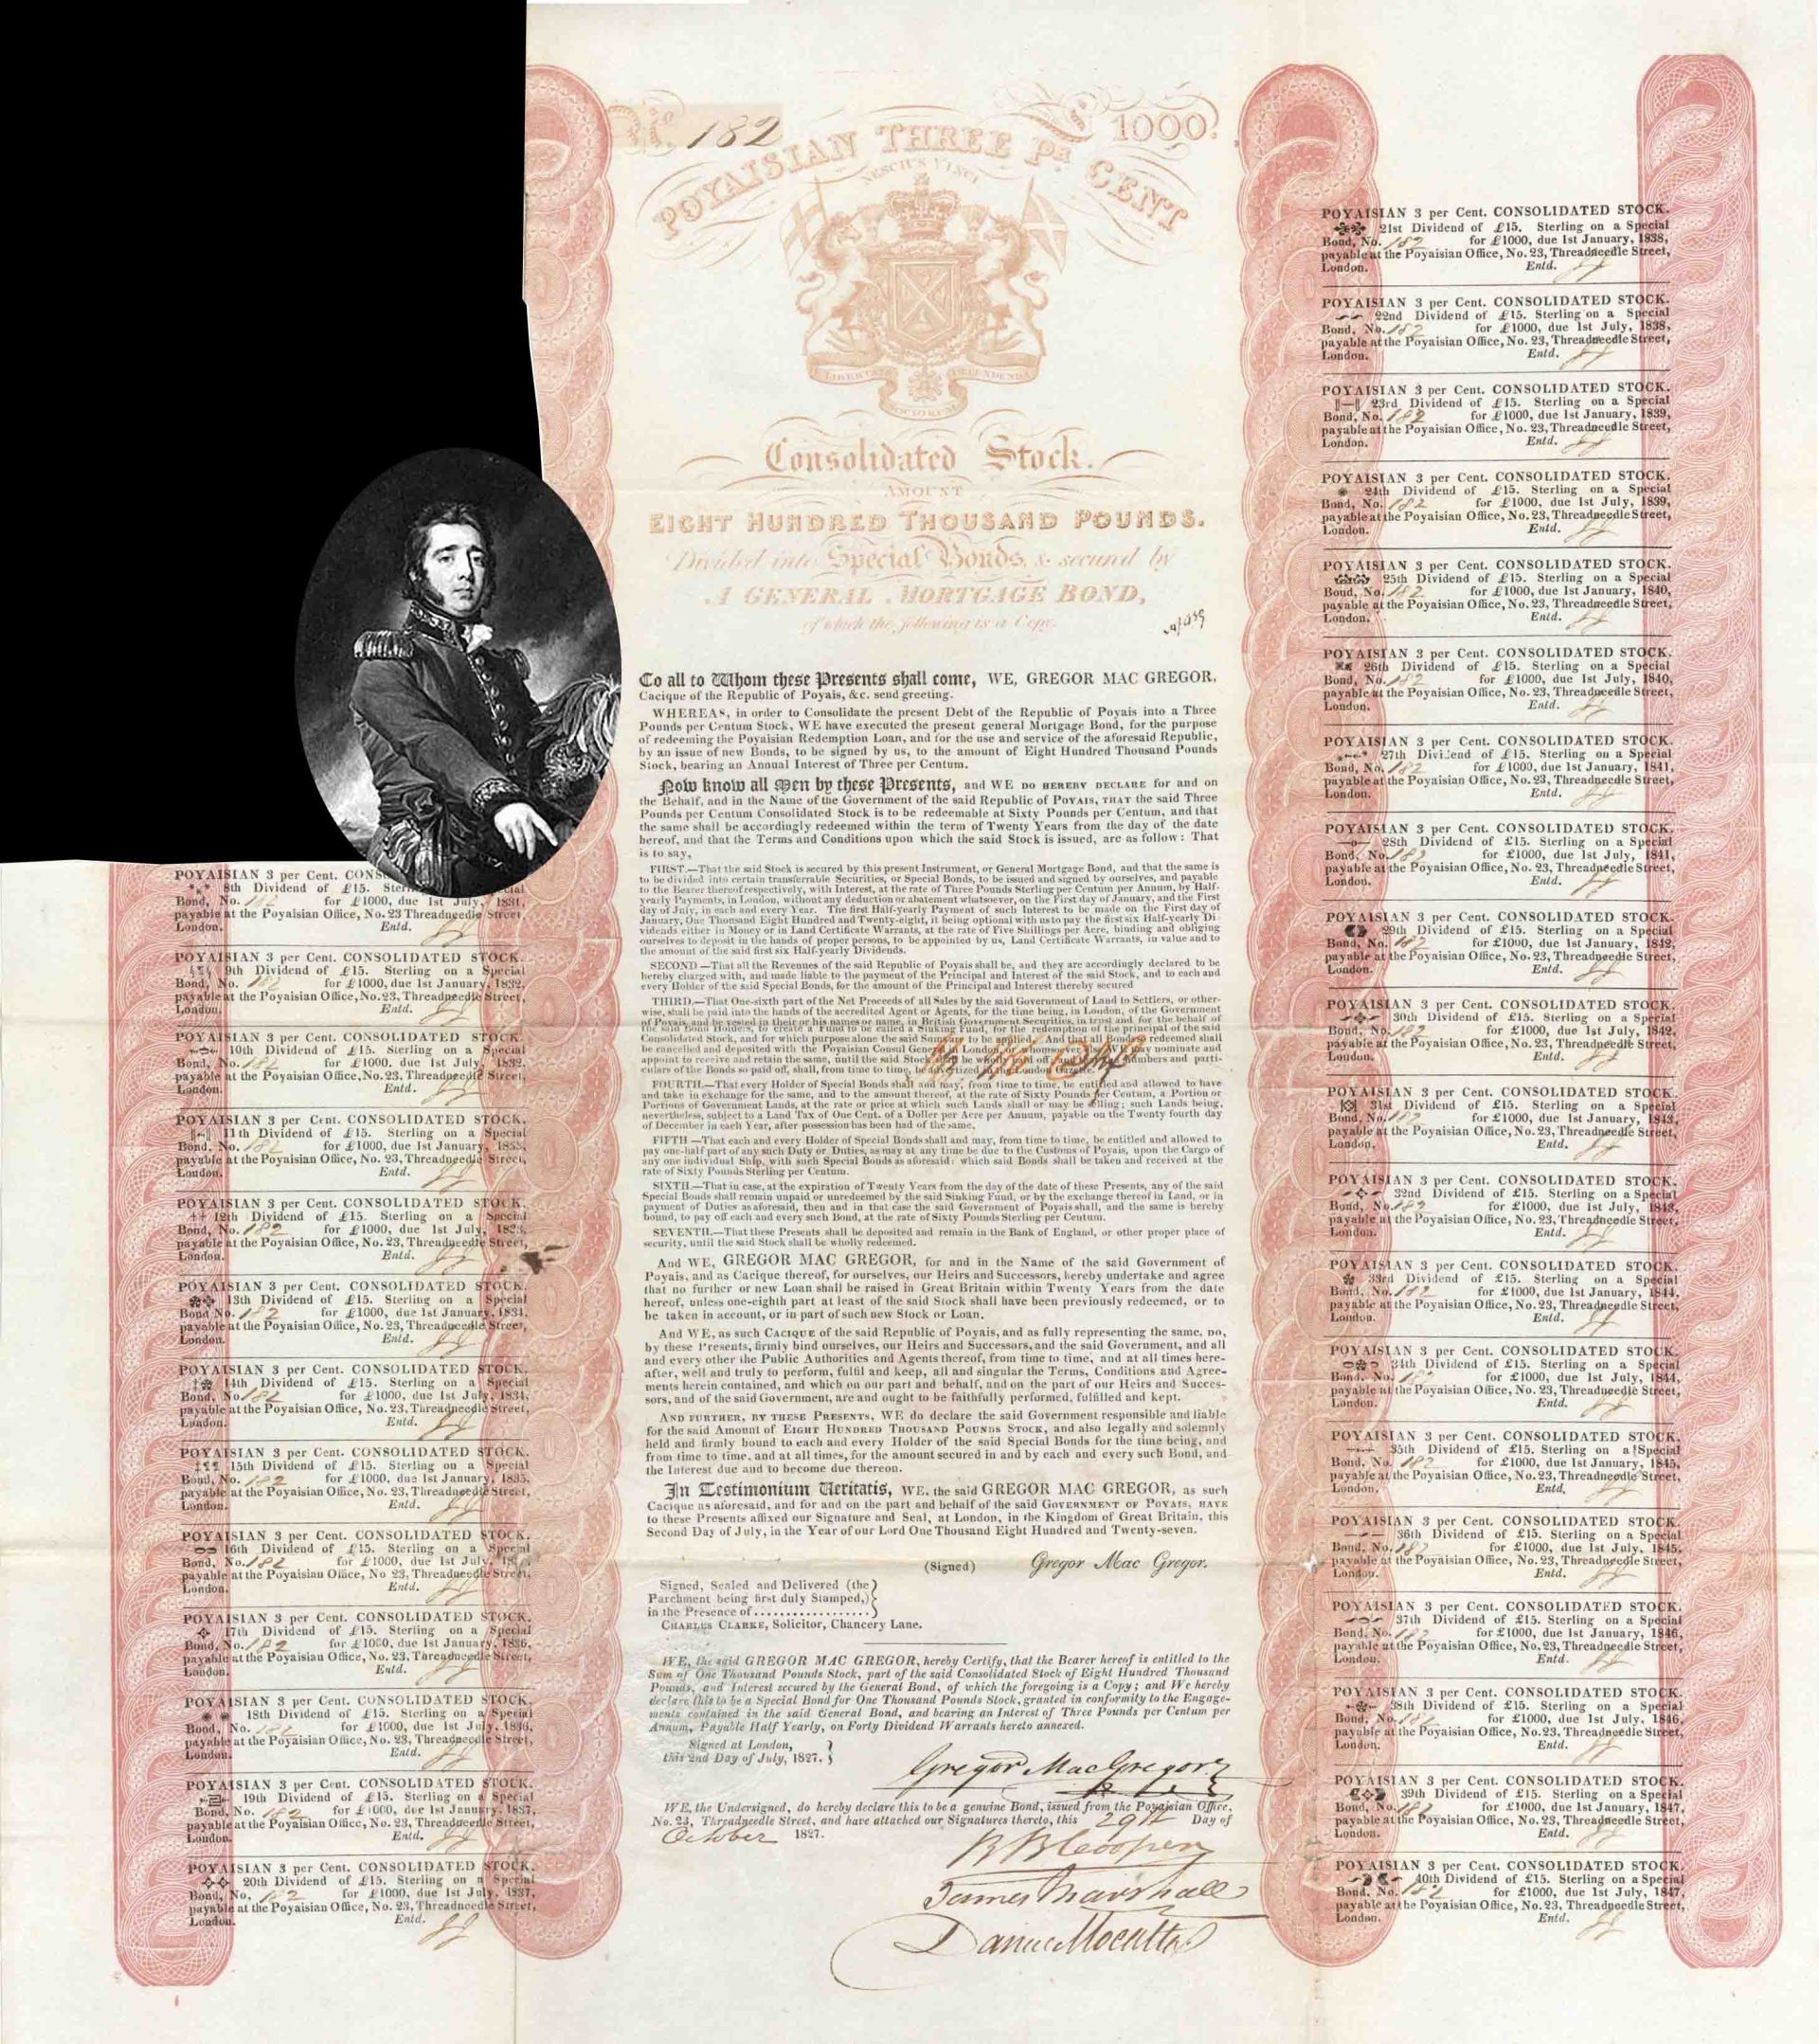 No. 182
£ 1000.
POYAISIAN THREE PR CENT
NESCIUS VINCI
LIBERTATE DEFENDENDA
SOCIORUM
Consolidated Stock.
AMOUNT
EIGHT HUNDRED THOUSAND POUNDS.
Divided into Special Bonds, & secured by
A GENERAL MORTGAGE BOND,
of which the following is a Copy.
To all to Whom these Presents shall come, WE, GREGOR MAC GREGOR,
Cacique of the Republic of Poyais, &c. send greeting.
WHEREAS, in order to Consolidate the present Debt of the Republic of Poyais into a Three
Pounds per Centum Stock, WE have executed the present general Mortgage Bond, for the purpose
of redeeming the Poyaisian Redemption Loan, and for the use and service of the aforesaid Republic,
by an issue of new Bonds, to be signed by us, to the amount of Eight Hundred Thousand Pounds
Stock, bearing an Annual Interest of Three per Centum.
Now know all Men by these Presents, and WE DO HEREBY DECLARE for and on
the Behalf, and in the Name of the Government of the said Republic of POYAIS, THAT the said Three
Pounds per Centum Consolidated Stock is to be redeemable at Sixty Pounds per Centum, and that
the same shall be accordingly redeemed within the term of Twenty Years from the day of the date
hereof, and that the Terms and Conditions upon which the said Stock is issued, are as follow: That
is to say,
FIRST.—That the said Stock is secured by this present Instrument, or General Mortgage Bond, and that the same is
to be divided, into certain transferrable Securities, or Special Bonds, to be issued and signed by ourselves, and payable
to the Bearer thereof respectively, with Interest, at the rate of Three Pounds Sterling per Centum per Annum, by Half-
yearly Payments, in London, without any deduction or abatement whatsoever, on the First day of January, and the First
day of July, in each and every Year. The first Half-yearly Payment of such Interest to be made on the First day of
January, One Thousand Eight Hundred and Twenty-eight, it being optional with us to pay the first six Half-yearly Di-
vidends either in Money or in Land Certificate Warrants, at the rate of Five Shillings per Acre, binding and obliging
ourselves to deposit in the hands of proper persons, to be appointed by us, Land Certificate Warrants, in value and to
the amount of the said first six Half-yearly Dividends.
SECOND—That all the Revenues of the said Republic of Poyais shall be, and they are accordingly declared to be
hereby charged with, and made liable to the payment of the Principal and Interest of the said Stock, and to each and
every Holder of the said Special Bonds, for the amount of the Principal and Interest thereby secured
THIRD.—That One-sixth part of the Net Proceeds of all Sales by the said Government of Land to Settlers, or other-
wise, shall be paid into the hands of the accredited Agent or Agents, for the time being, in London, of the Government
of Poyais, and be vested in their or his names or name, in British Government Securities, in trust and for the behalf of
the said Bond Holders, to create a Fund to be called a Sinking Fund, for the redemption of the principal of the said
Consolidated Stock, and for which purpose alone the said Sums are to be applied. And that all Bonds so redeemed shall
be cancelled and deposited with the Poyaisian Consul General in London, or whomsoever else We may nominate and
appoint to receive and retain the same, until the said Stock shall be wholly paid off, and the numbers and parti-
culars of the Bonds so paid off, shall, from time to time, be advertized in the London Gazette.
FOURTH.—That every Holder of Special Bonds shall and may, from time to time, be entitled and allowed to have
and take in exchange for the same, and to the amount thereof, at the rate of Sixty Pounds per Centum, a Portion or
Portions of Government Lands, at the rate or price at which such Lands shall or may be selling; such Lands being,
nevertheless, subject to a Land Tax of One Cent. of a Doller per Acre per Annum, payable on the Twenty fourth day
of December in each Year, after possession has been had of the same.
FIFTH—That each and every Holder of Special Bonds shall and may, from time to time, be entitled and allowed to
pay one-half part of any such Duty or Duties, as may at any time be due to the Customs of Poyais, upon the Cargo of
any one individual Ship, with such Special Bonds as aforesaid: which said Bonds shall be taken and received at the
rate of Sixty Pounds Sterling per Centum.
SIXTH—That in case, at the expiration of Twenty Years from the day of the date of these Presents, any of the said
Special Bonds shall remain unpaid or unredeemed by the said Sinking Fund, or by the exchange thereof in Land, or in
payment of Duties as aforesaid, then and in that case the said Government of Poyais shall, and the same is hereby
bound, to pay off each and every such Bond, at the rate of Sixty Pounds Sterling per Centum.
SEVENTH.—That these Presents shall be deposited and remain in the Bank of England, or other proper place of
security, until the said Stock shall be wholly redeemed.
And WE, GREGOR MAC GREGOR, for and in the Name of the said Government of
Poyais, and as Cacique thereof, for ourselves, our Heirs and Successors, hereby undertake and agree
that no further or new Loan shall be raised in Great Britain within Twenty Years from the date
hereof, unless one-eighth part at least of the said Stock shall have been previously redeemed, or to
be taken in account, or in part of such new Stock or Loan.
And WE, as such CACIQUE of the said Republic of Poyais, and as fully representing the same, DO,
by these Presents, firmly bind ourselves, our Heirs and Successors, and the said Government, and all
and every other the Public Authorities and Agents thereof, from time to time, and at all times here-
after, well and truly to perform, fulfil and keep, all and singular the Terms, Conditions and Agree-
ments herein contained, and which on our part and behalf, and on the part of our Heirs and Succes-
sors, and of the said Government, are and ought to be faithfully performed, fulfilled and kept.
AND FURTHER, BY THESE PRESENTS, WE do declare the said Government responsible and liable
for the said Amount of EIGHT HUNDRED THOUSAND POUNDS STOCK, and also legally and solemnly
held and firmly bound to each and every Holder of the said Special Bonds for the time being, and
from time to time, and at all times, for the amount secured in and by each and every such Bond, and
the Interest due and to become due thereon.
In Testimonium Veritatis, WE, the said GREGOR MAC GREGOR, as such
Cacique as aforesaid, and for and on the part and behalf of the said GOVERNMENT OF POYAIS, HAVE
to these Presents affixed our Signature and Seal, at London, in the Kingdom of Great Britain, this
Second Day of July, in the Year of our Lord One Thousand Eight Hundred and Twenty-seven.
(Signed) Gregor Mac Gregor.
Signed, Sealed and Delivered (the
Parchment being first duly Stamped,)
in the Presence of..................
CHARLES CLARKE, Solicitor, Chancery Lane.
WE, the said GREGOR MAC GREGOR, hereby Certify, that the Bearer hereof is entitled to the
Sum of One Thousand Pounds Stock, part of the said Consolidated Stock of Eight Hundred Thousand
Pounds, and Interest secured by the General Bond, of which the foregoing is a Copy; and We hereby
declare this to be a Special Bond for One Thousand Pounds Stock, granted in conformity to the Engage-
ments contained in the said General Bond, and bearing an Interest of Three Pounds per Centum per
Annum, Payable Half Yearly, on Forty Dividend Warrants hereto annexed.
Signed at London,
this 2nd Day of July, 1827.
Gregor MacGregor
WE, the Undersigned, do hereby declare this to be a genuine Bond, issued from the Poyaisian Office,
No. 23, Threadneedle Street, and have attached our Signatures thereto, this 29th Day of
October 1827.
R B Cooper
James Marshall
Daniel Mocatta
POYAISIAN 3 per Cent. CONS
8th Dividend of £15. Sterl
Bond, No. 182 for £1000, due 1st July, 1831,
payable at the Poyaisian Office, No. 23 Threadneedle Street,
London. Entd.
POYAISIAN 3 per Cent. CONSOLIDATED STOCK.
9th Dividend of £15. Sterling on a Special
Bond, No. 182 for £1000, due 1st January, 1832,
payable at the Poyaisian Office, No. 23, Threadneedle Street,
London. Entd.
POYAISIAN 3 per Cent. CONSOLIDATED STOCK.
10th Dividend of £15. Sterling on a Special
Bond, No. 182 for £1000. due 1st July, 1832,
payable at the Poyaisian Office, No. 23. Threadneedle Street,
London. Entd.
POYAISIAN 3 per Cent. CONSOLIDATED STOCK.
11th Dividend of £15. Sterling on a Special
Bond, No. 182 for £1000, due 1st January, 1833,
payable at the Poyaisian Office, No. 23, Threadneedle Street,
London. Entd.
POYAISIAN 3 per Cent. CONSOLIDATED STOCK.
12th Dividend of £15. Sterling on a Special
Bond, No. 182 for £1000, due 1st July, 1833,
payable at the Poyaisian Office, No. 23, Threadneedle Street,
London. Entd.
POYAISIAN 3 per Cent. CONSOLIDATED STOCK.
13th Dividend of £15. Sterling on a Special
Bond No. 182 for £1000, due 1st January, 1834,
payable at the Poyaisian Office, No. 23, Threadneedle Street,
London. Entd.
POYAISIAN 3 per Cent. CONSOLIDATED STOCK.
14th Dividend of £15. Sterling on a Special
Bond, No. 182 for £1000, due 1st July, 1834,
payable at the Poyaisian Office, No. 23, Threadneedle Street,
London. Entd.
POYAISIAN 3 per Cent. CONSOLIDATED STOCK.
15th Dividend of £15. Sterling on a Special
Bond, No. 182 for £1000, due 1st January, 1835,
payable at the Poyaisian Office, No. 23, Threadneedle Street,
London. Entd.
POYAISIAN 3 per Cent. CONSOLIDATED STOCK.
16th Dividend of £15. Sterling on a Special
Bond, No. 182 for £1000, due 1st July,
payable at the Poyaisian Office, No 23, Threadneedle Street,
London. Entd.
POYAISIAN 3 per Cent. CONSOLIDATED STOCK.
17th Dividend of £15. Sterling on a Special
Bond, No. 182 for £1000, due 1st January, 1836,
payable at the Poyaisian Office, No. 23, Threadneedle Street,
London. Entd.
POYAISIAN 3 per Cent. CONSOLIDATED STOCK.
18th Dividend of £15. Sterling on a Special
Bond, No. 182 for £1000, due 1st July, 1836,
payable at the Poyaisian Office, No. 23, Threadneedle Street,
London. Entd.
POYAISIAN 3 per Cent. CONSOLIDATED STOCK.
19th Dividend of £15. Sterling on a Special
Bond, No. 182 for £1000, due 1st January, 1837,
payable at the Poyaisian Office, No. 23, Threadneedle Street,
London. Entd.
POYAISIAN 3 per Cent. CONSOLIDATED STOCK.
20th Dividend of £15. Sterling on a Special
Bond, No. 182 for £1000, due 1st July, 1837,
payable at the Poyaisian Office, No. 23, Threadneedle Street,
London. Entd.
POYAISIAN 3 per Cent. CONSOLIDATED STOCK.
21st Dividend of £15. Sterling on a Special
Bond, No. 182 for £1000, due 1st January, 1838,
payable at the Poyaisian Office, No. 23, Threadneedle Street,
London. Entd.
POYAISIAN 3 per Cent. CONSOLIDATED STOCK.
22nd Dividend of £15. Sterling on a Special
Bond, No. 182 for £1000, due 1st July, 1838,
payable at the Poyaisian Office, No. 23, Threadneedle Street,
London. Entd.
POYAISIAN 3 per Cent. CONSOLIDATED STOCK.
23rd Dividend of £15. Sterling on a Special
Bond, No. 182 for £1000, due 1st January, 1839,
payable at the Poyaisian Office, No. 23, Threadneedle Street,
London. Entd.
POYAISIAN 3 per Cent. CONSOLIDATED STOCK.
24th Dividend of £15. Sterling on a Special
Bond, No. 182 for £1000, due 1st July, 1839,
payable at the Poyaisian Office, No. 23, Threadneedle Street,
London. Entd.
POYAISIAN 3 per Cent. CONSOLIDATED STOCK.
25th Dividend of £15. Sterling on a Special
Bond, No. 182 for £1000, due 1st January, 1840,
payable at the Poyaisian Office, No. 23, Threadneedle Street,
London. Entd.
POYAISIAN 3 per Cent. CONSOLIDATED STOCK.
26th Dividend of £15. Sterling on a Special
Bond, No. 182 for £1000, due 1st July, 1840,
payable at the Poyaisian Office, No. 23, Threadneedle Street,
London. Entd.
POYAISIAN 3 per Cent. CONSOLIDATED STOCK.
27th Dividend of £15. Sterling on a Special
Bond, No. 182 for £1000, due 1st January, 1841,
payable at the Poyaisian Office, No. 23, Threadneedle Street,
London. Entd.
POYAISIAN 3 per Cent. CONSOLIDATED STOCK.
28th Dividend of £15. Sterling on a Special
Bond, No. 182 for £1000, due 1st July, 1841,
payable at the Poyaisian Office, No. 23, Threadneedle Street,
London. Entd.
POYAISIAN 3 per Cent. CONSOLIDATED STOCK.
29th Dividend of £15. Sterling on a Special
Bond, No. 182 for £1000, due 1st January, 1842,
payable at the Poyaisian Office, No. 23, Threadneedle Street,
London. Entd.
POYAISIAN 3 per Cent. CONSOLIDATED STOCK.
30th Dividend of £15. Sterling on a Special
Bond, No. 182 for £1000, due 1st July, 1842,
payable at the Poyaisian Office, No. 23, Threadneedle Street,
London. Entd.
POYAISIAN 3 per Cent. CONSOLIDATED STOCK.
31st Dividend of £15. Sterling on a Special
Bond, No. 182 for £1000, due 1st January, 1843,
payable at the Poyaisian Office, No. 23, Threadneedle Street,
London. Entd.
POYAISIAN 3 per Cent. CONSOLIDATED STOCK.
32nd Dividend of £15. Sterling on a Special
Bond, No. 182 for £1000, due 1st July, 1843,
payable at the Poyaisian Office, No. 23, Threadneedle Street,
London. Entd.
POYAISIAN 3 per Cent. CONSOLIDATED STOCK.
33rd Dividend of £15. Sterling on a Special
Bond, No. 182 for £1000, due 1st January, 1844,
payable at the Poyaisian Office, No. 23, Threadneedle Street,
London. Entd.
POYAISIAN 3 per Cent. CONSOLIDATED STOCK.
34th Dividend of £15. Sterling on a Special
Bond, No. 182 for £1000, due 1st July, 1844,
payable at the Poyaisian Office, No. 23, Threadneedle Street,
London. Entd.
POYAISIAN 3 per Cent. CONSOLIDATED STOCK.
35th Dividend of £15. Sterling on a Special
Bond, No. 182 for £1000, due 1st January, 1845,
payable at the Poyaisian Office, No. 23, Threadneedle Street,
London. Entd.
POYAISIAN 3 per Cent. CONSOLIDATED STOCK.
36th Dividend of £15. Sterling on a Special
Bond, No. 182 for £1000, due 1st July, 1845,
payable at the Poyaisian Office, No. 23, Threadneedle Street,
London. Entd.
POYAISIAN 3 per Cent. CONSOLIDATED STOCK.
37th Dividend of £15. Sterling on a Special
Bond, No. 182 for £1000, due 1st January, 1846,
payable at the Poyaisian Office, No. 23, Threadneedle Street,
London. Entd.
POYAISIAN 3 per Cent. CONSOLIDATED STOCK.
38th Dividend of £15. Sterling on a Special
Bond, No. 182 for £1000, due 1st July, 1846,
payable at the Poyaisian Office, No. 23, Threadneedle Street,
London. Entd.
POYAISIAN 3 per Cent. CONSOLIDATED STOCK.
39th Dividend of £15. Sterling on a Special
Bond, No. 182 for £1000, due 1st January, 1847,
payable at the Poyaisian Office, No. 23, Threadneedle Street,
London. Entd.
POYAISIAN 3 per Cent. CONSOLIDATED STOCK.
40th Dividend of £15. Sterling on a Special
Bond, No. 182 for £1000, due 1st July, 1847,
payable at the Poyaisian Office, No. 23, Threadneedle Street,
London. Entd.